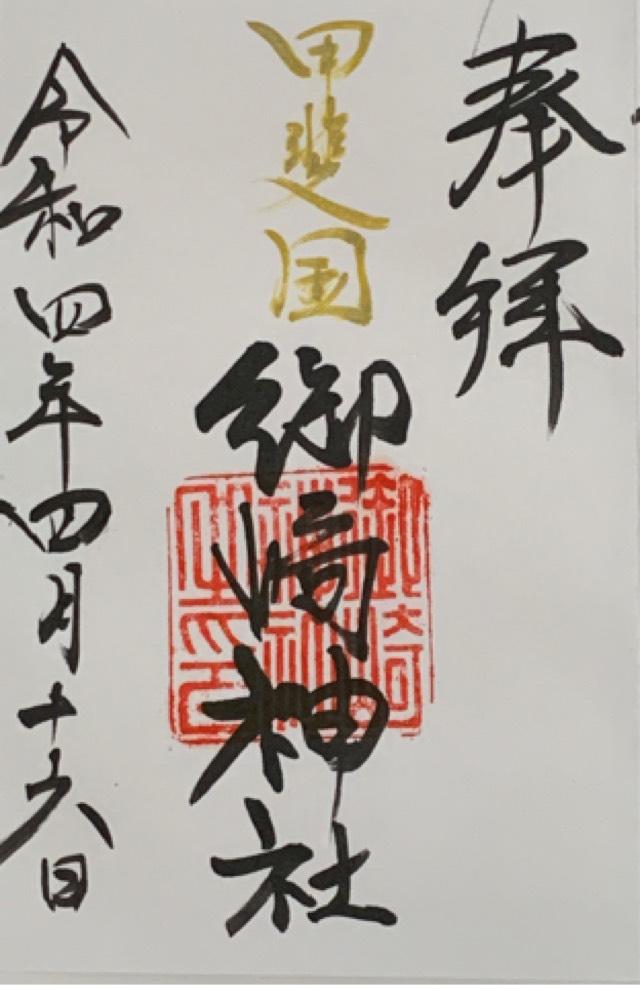 奉拝
甲斐国
御崎神社
令和四年四月十六日